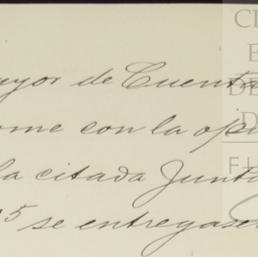 ayor de Cuenta
ome con la opi
la citada Junta
5 se entregase